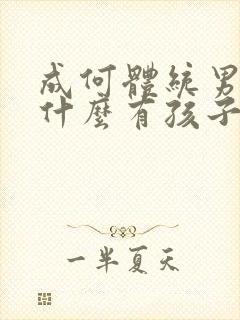 成何體統男
什麼有孩子
一半夏天